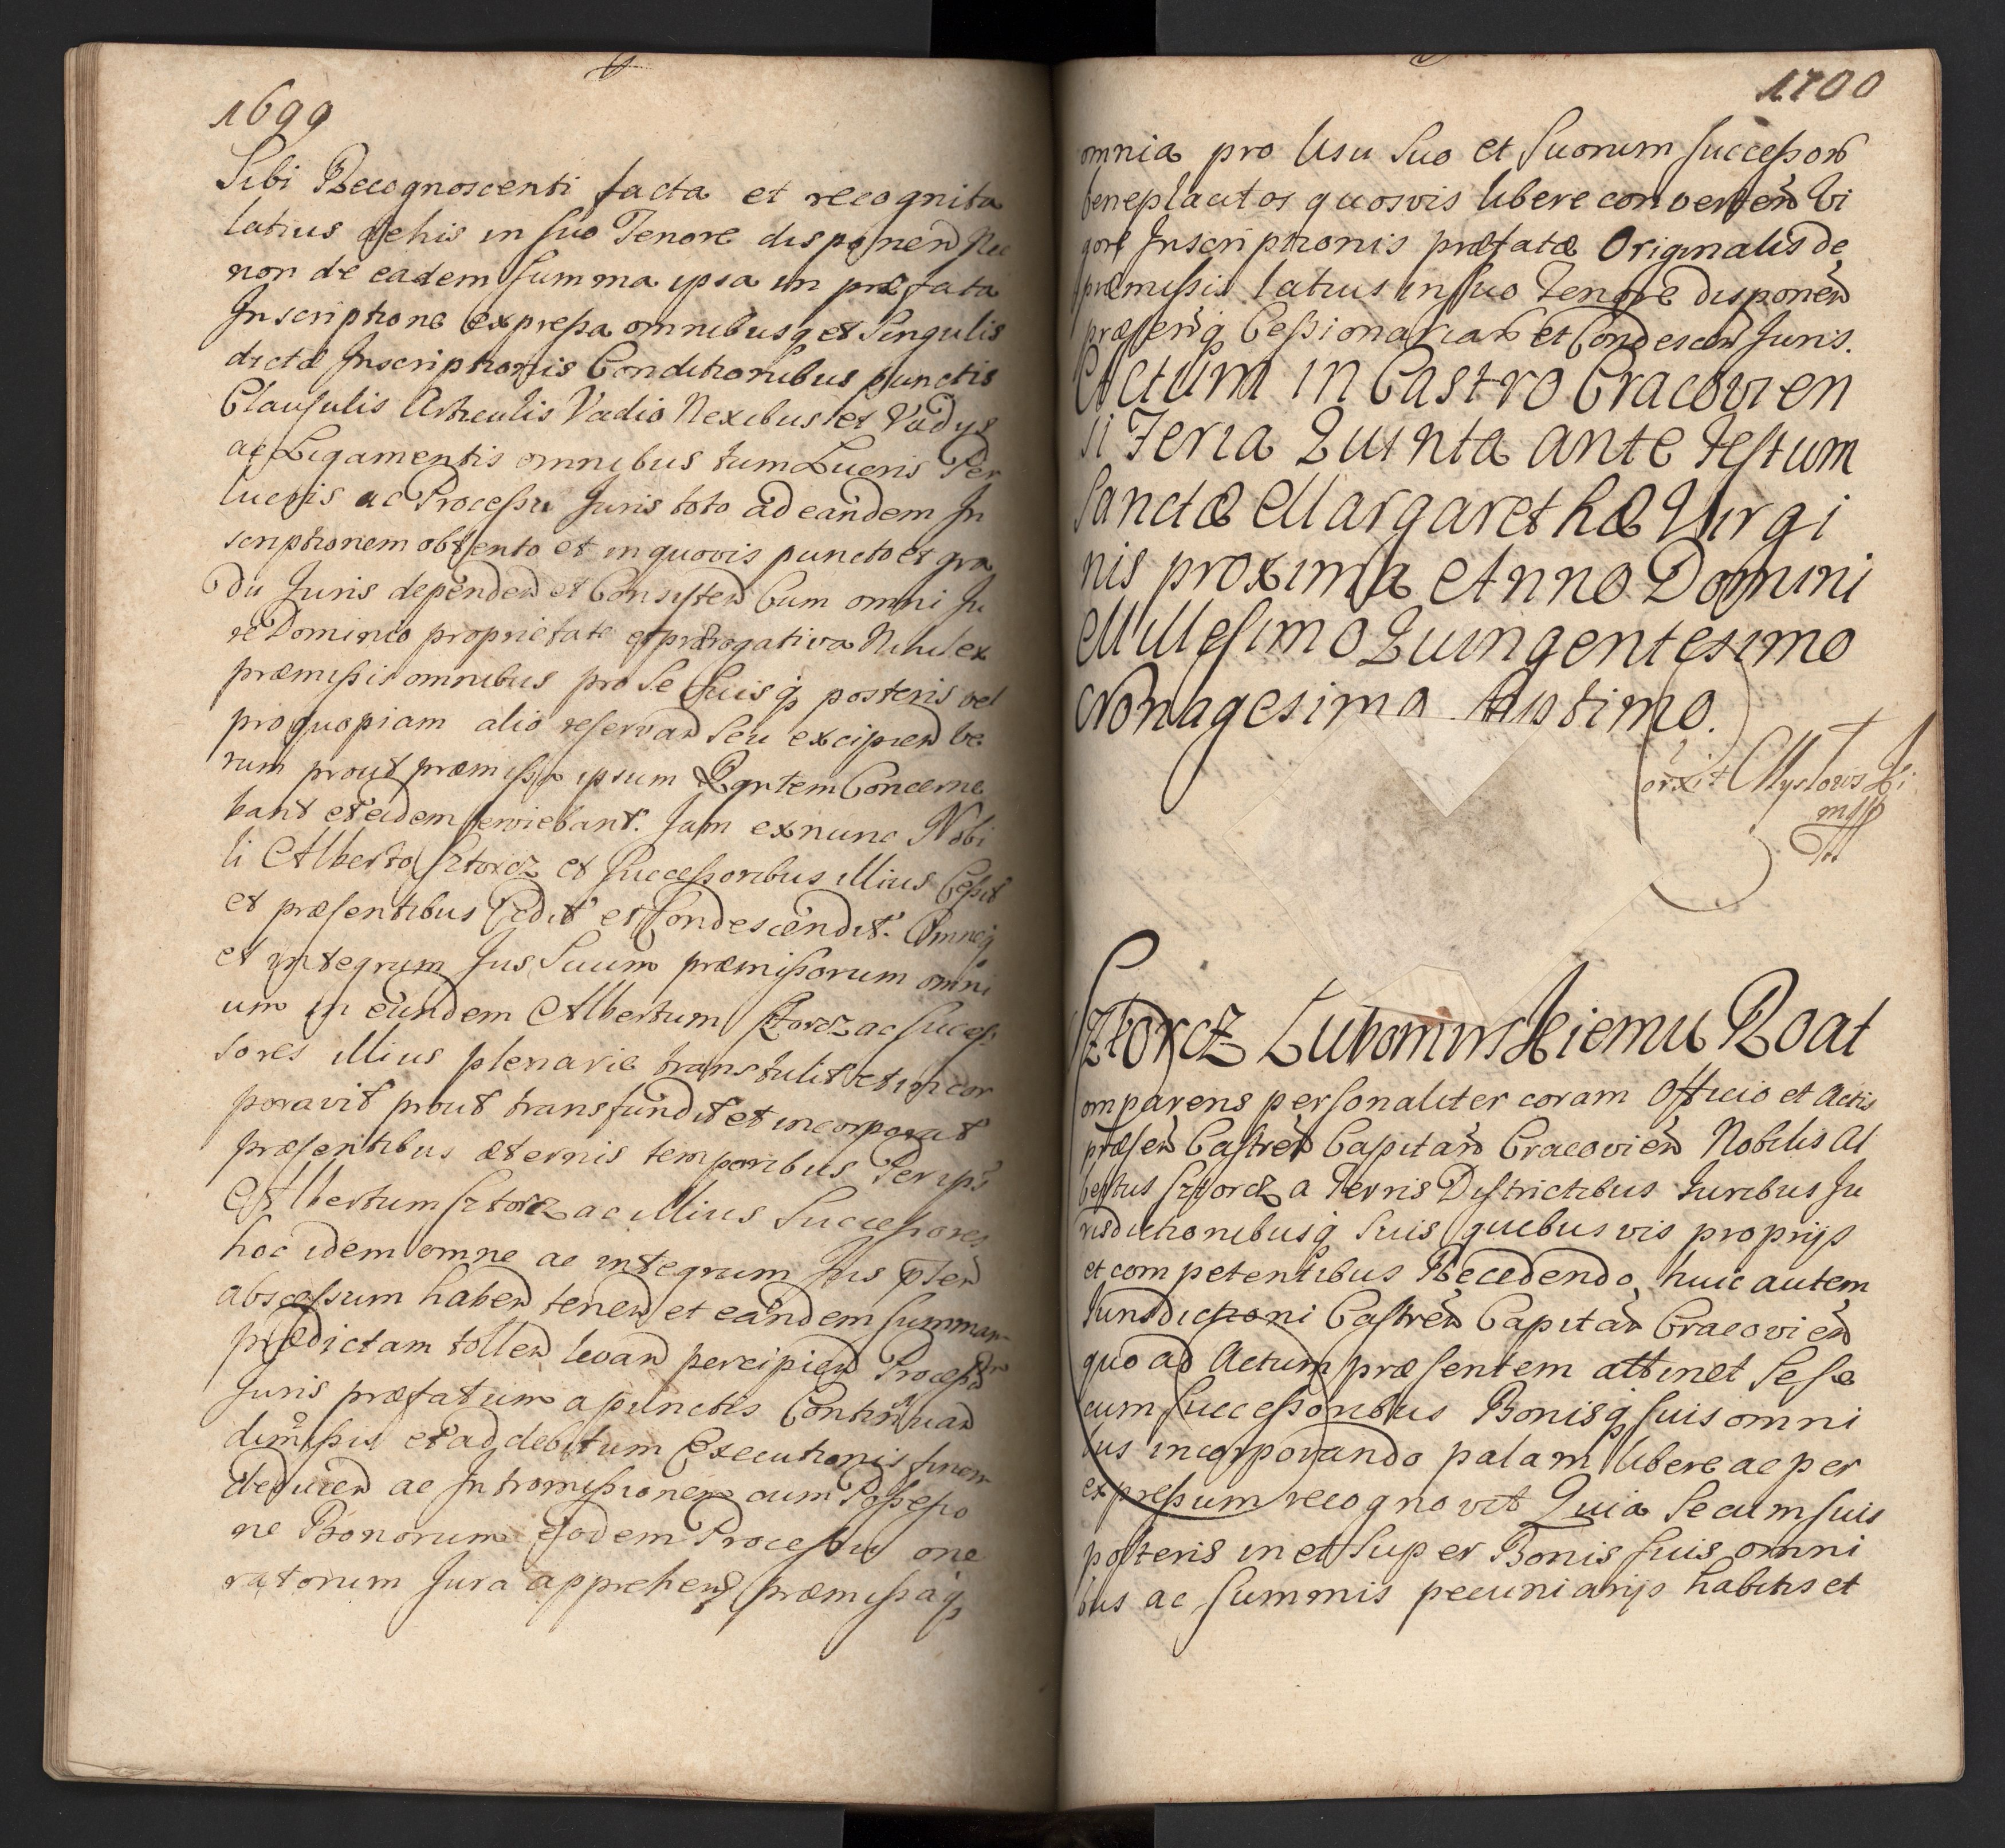 1699
Sibi Recognoscenti facta et recognita
latius de his in suo Tenore disponen Nec
non de eadem summa ipsa in præfata
Inscriptione expressa omnibusq et Singulis
dictæ Inscriptionis Conditionibus punctis
Clausulis Articulis Vadio Nexibus et Vadys
ac Ligamentis omnibus tum Lucris Per
lucris ac Processu Juris toto ad eandem In
scriptionem obtento et in quovis puncto et gra
du Juris dependen et Consisten Cum omni Ju
re Dominio proprietate et prærogativa Nihil ex
præmissis omnibus pro se suisq posteris vel
pro quopiam alio reservan seu excipien ve
rum prout præmissa ipsum Partem Concerne
bant et eidem serviebant. Jam ex nunc Nobi
li Alberto Sztorcz et Successoribus illius Cessit
et præsentibus Cedit et Condescendit. Omneq
et integrum Jus Suum præmissorum omni
um in eundem Albertum Sztorcz ac succes
sores illius plenarie transtulit et incor
poravit prout transfundit et incorporat
præsentibus æternis temporibus Per ips
Albertum Sztorcz ac illius Successores
hoc idem omne ac integrum Jus pten
abscessum haben tenen et eandem summam
prædictam tollen levan percipien Processu
Juris præfatum a punctis Continuan
dimissis et ad debitum Executionis finem
deducen ac Intromissionem cum Possessio
ne Bonorum eodem Processu one
ratorum Jura apprehen præmissaq
1700
omnia pro Usu Suo et Suorum successor
beneplacitos quosvis libere converten Vi
gore Inscriptionis præfatæ Originalis de
præmissis latius in suo Tenore disponen
præsenq Cessionariar et Condescen Juris.
Actum in Castro Cracovien
si Feria Quinta ante Festum
Sanctæ Margarethæ Virgi
nis proxima Anno Domini
Millesimo Quingentesimo
Nonagesimo Septimo.
Sztorcz Lubomirskiemu Roat
omparens personaliter coram Officio et Actis
præsen Castren Capitan Cracovien Nobilis Al
bertus Sztorcz a Terris Districtibus Juribus Ju
risdictionibusq Suis quibus vis proprijs
et competentibus Recedendo, huic autem
Jurisdictioni Castren Capitan Cracovien
quo ad Actum præsentem attinet Sese
cum Successoribus Bonisq suis omni
bus incorporando palam libere ac per
expressum recognovit Quia Se cum suis
posteris in et super Bonis suis omni
bus ac summis pecuniarijs habitis et